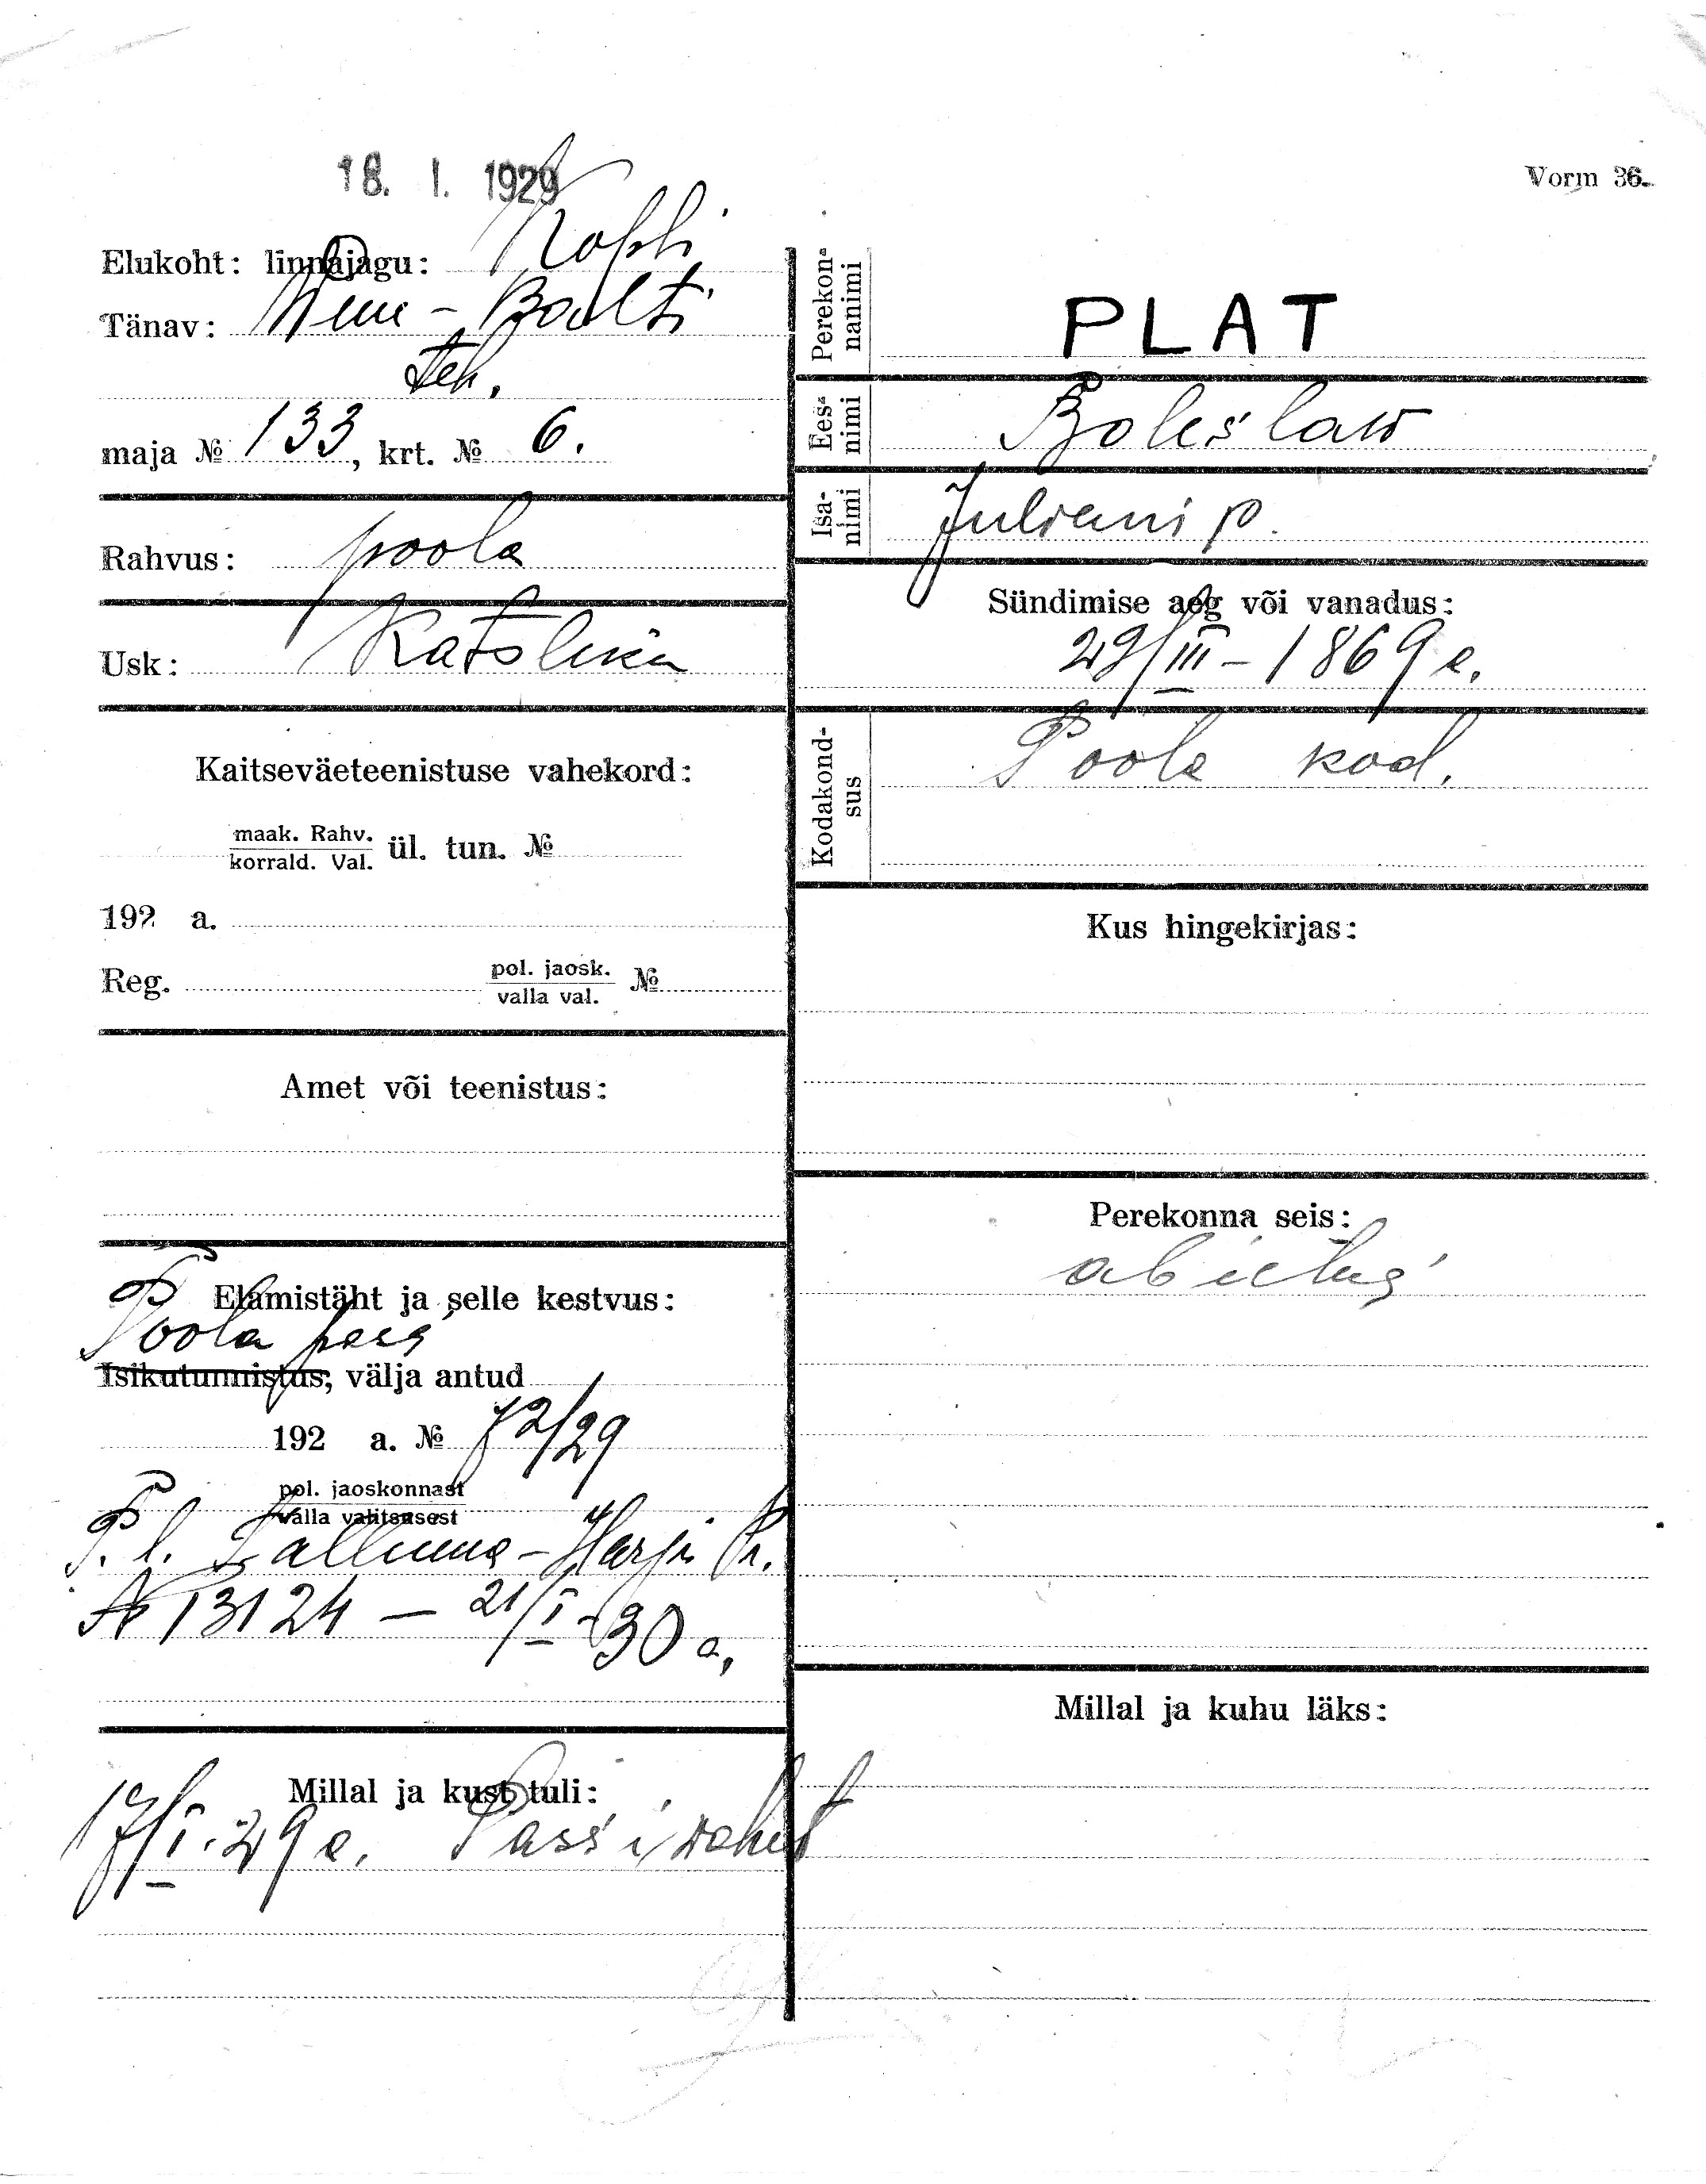 18. I. 1929
Vorm 36.
Elukoht: linnajagu: Kopli
Tänav: Wene-Balti
teh.
maja № 133, krt. № 6.
Rahvus: poola
Usk: Katoliku
Kaitseväeteenistuse vahekord:
maak. Rahv.
korrald. Val. ül. tun. №
192 a.
Reg. pol. jaosk. №
valla val.
Amet või teenistus:
Elamistäht ja selle kestvus:
Poola pass
Isikutunnistus, välja antud
192 a. № 72/29
pol. jaoskonnast
valla valitsusest
P. l. Tallinna-Harju Pr.
№ 13124 – 21/I-30 a.
Millal ja kust tuli:
17/I.29 a. Passi wahet
Perekon-
nanimi
PLAT
Ees-
nimi
Boleslaw
Isa-
nimi
Juliani p.
Sündimise aeg või vanadus:
29/III-1869 a.
Kodakond-
sus
Poola kod.
Kus hingekirjas:
Perekonna seis:
abielus
Millal ja kuhu läks: